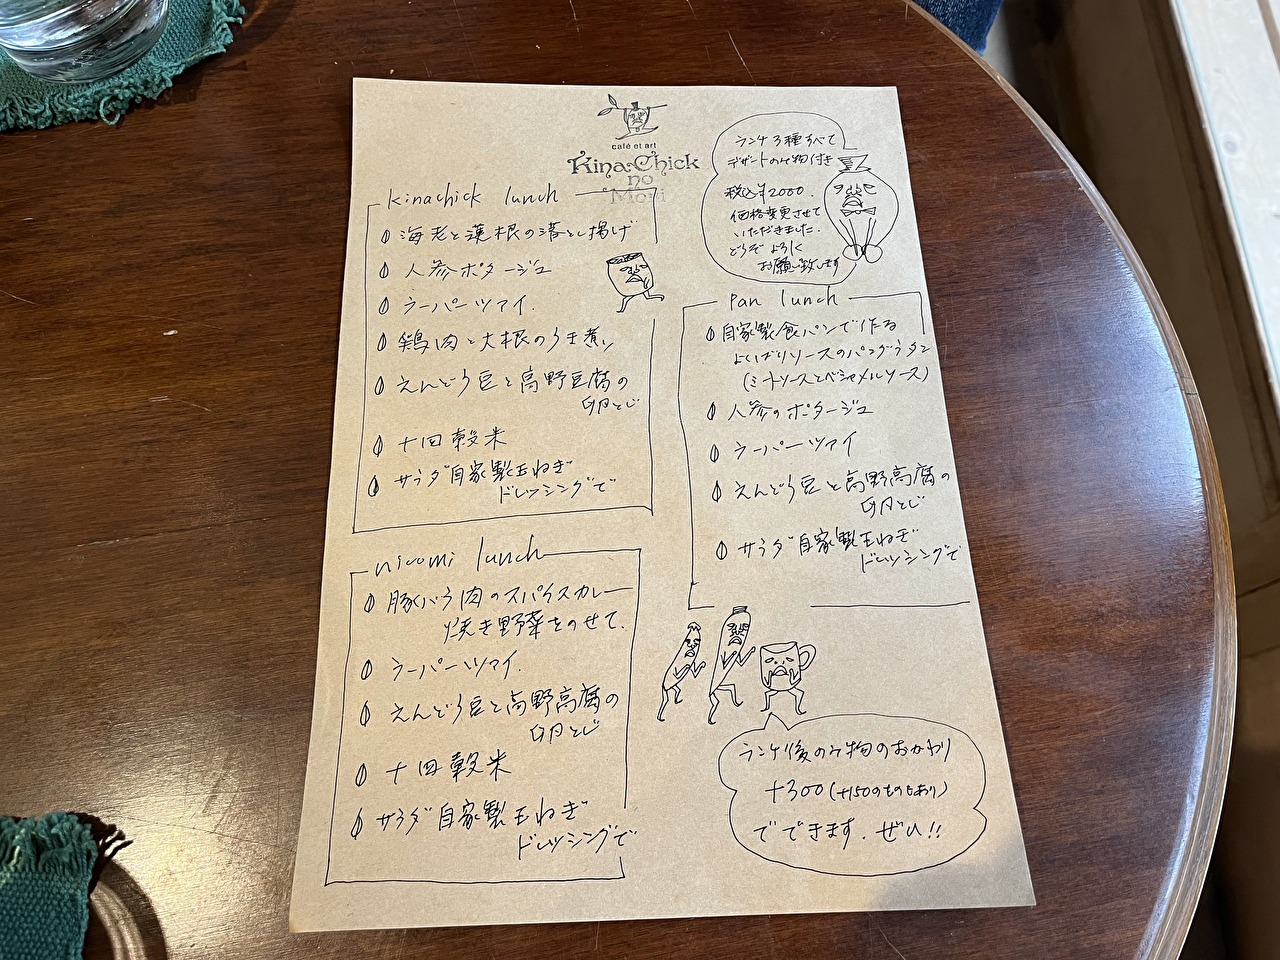 café et art
Kina-Chick
no
Mori
ランチ3種すべて
デザートのみ物付き
税込¥2000.
価格変更させて
いただきました.
どうぞ よろしく
お願い致します
kinachick lunch
海老と蓮根の落とし揚げ
人参ポタージュ
ラーパーツァイ.
鶏肉と大根のうま煮
えんどう豆と高野豆腐の
卵とじ
十四穀米
サラダ自家製玉ねぎ
ドレッシングで
pan lunch
自家製食パンで作る
よくばりソースのパングラタン
(ミートソースとベシャメルソース)
人参のポタージュ
ラーパーツァイ
えんどう豆と高野高腐の
卵とじ
サラダ自家製玉ねぎ
ドレッシングで
nicomi lunch
豚バラ肉のスパイスカレー
焼き野菜をのせて.
ラーパーツァイ.
えんどう豆と高野高腐の
卵とじ
十四穀米
サラダ自家製玉ねぎ
ドレッシングで
ランチ後のみ物のおかわり
+300(+150のものもあり)
でできます. ぜひ!!